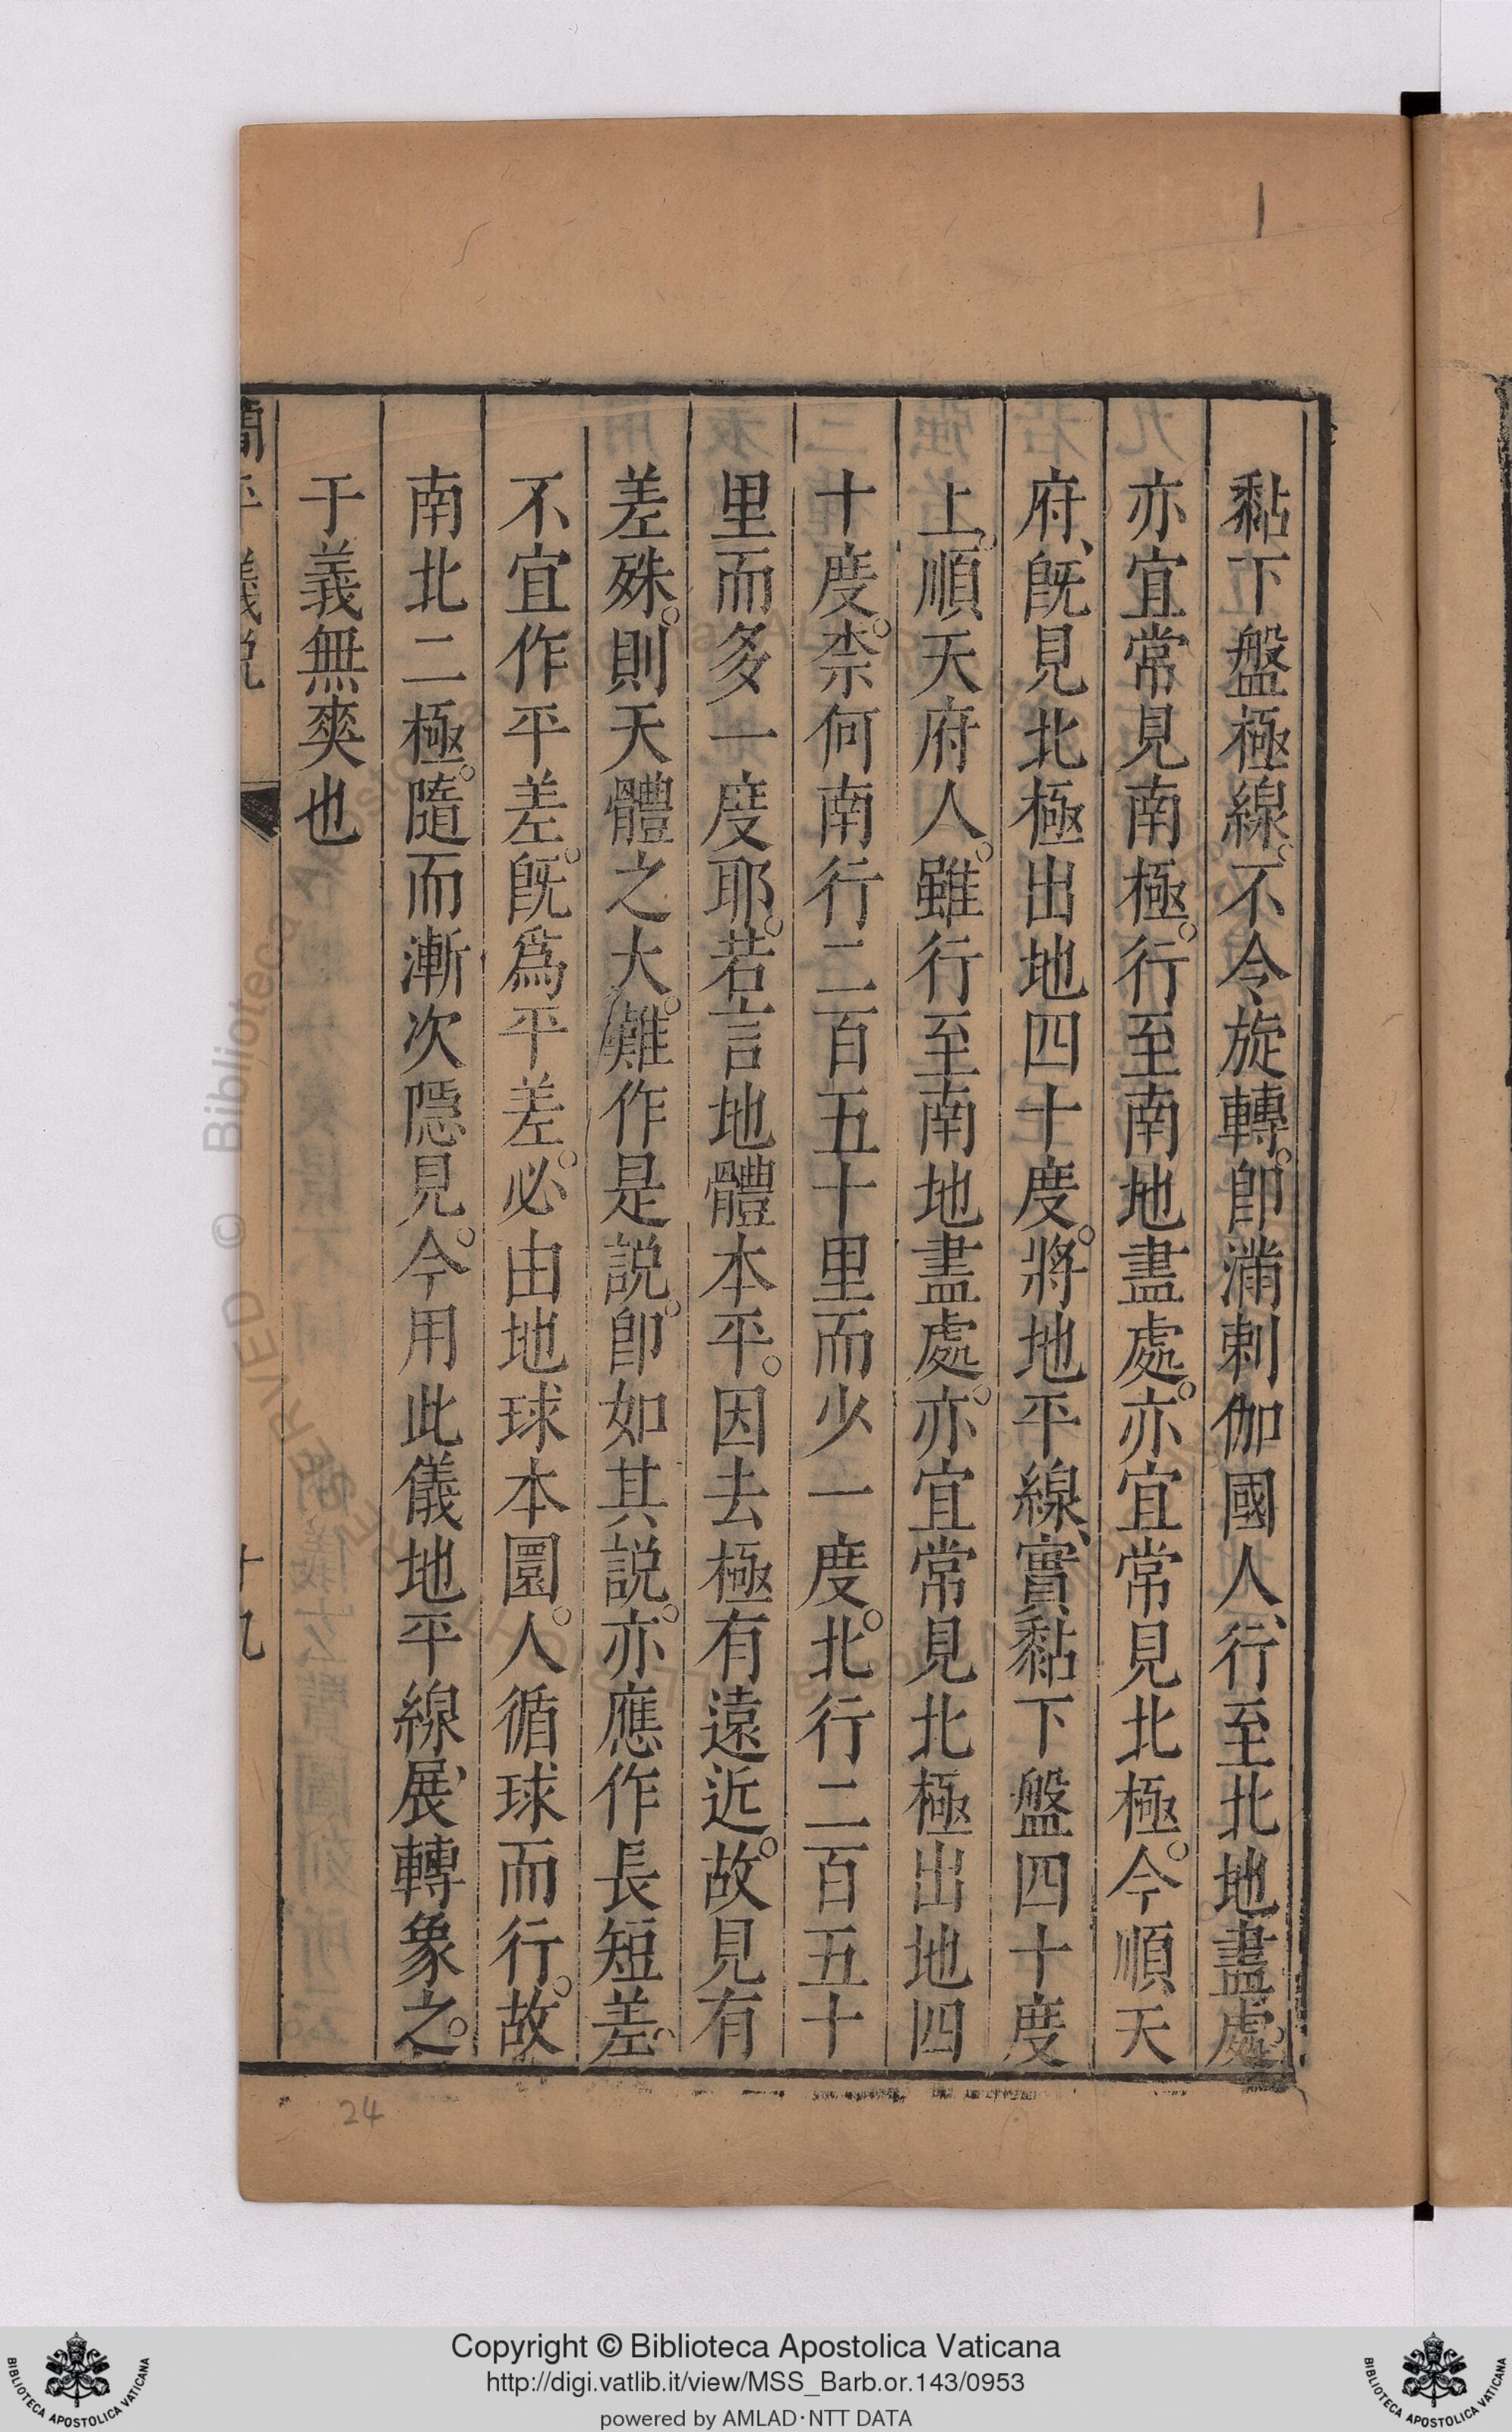 黏下盤極線。不令旋轉。卽滿剌伽國人、行至北地盡處。
亦宜常見南極。行至南地盡處。亦宜常見北極。今順天
府、旣見北極出地四十度。將地平線、實黏下盤四十度
上。順天府人。雖行至南地盡處。亦宜常見北極出地四
十度。柰何南行二百五十里而少一度。北行二百五十
里而多一度耶。若言地體本平。因去極有遠近。故見有
差殊。則天體之大。難作是説。卽如其説。亦應作長短差。
不宜作平差。旣爲平差。必由地球本圜。人循球而行。故
南北二極。隨而漸次隱見。今用此儀地平線、展轉象之。
于義無爽也
簡平儀説
十九
24
Copyright © Biblioteca Apostolica Vaticana
http://digi.vatlib.it/view/MSS_Barb.or.143/0953
powered by AMLAD·NTT DATA
BIBLIOTECA APOSTOLICA VATICANA
BIBLIOTECA APOSTOLICA VATICANA